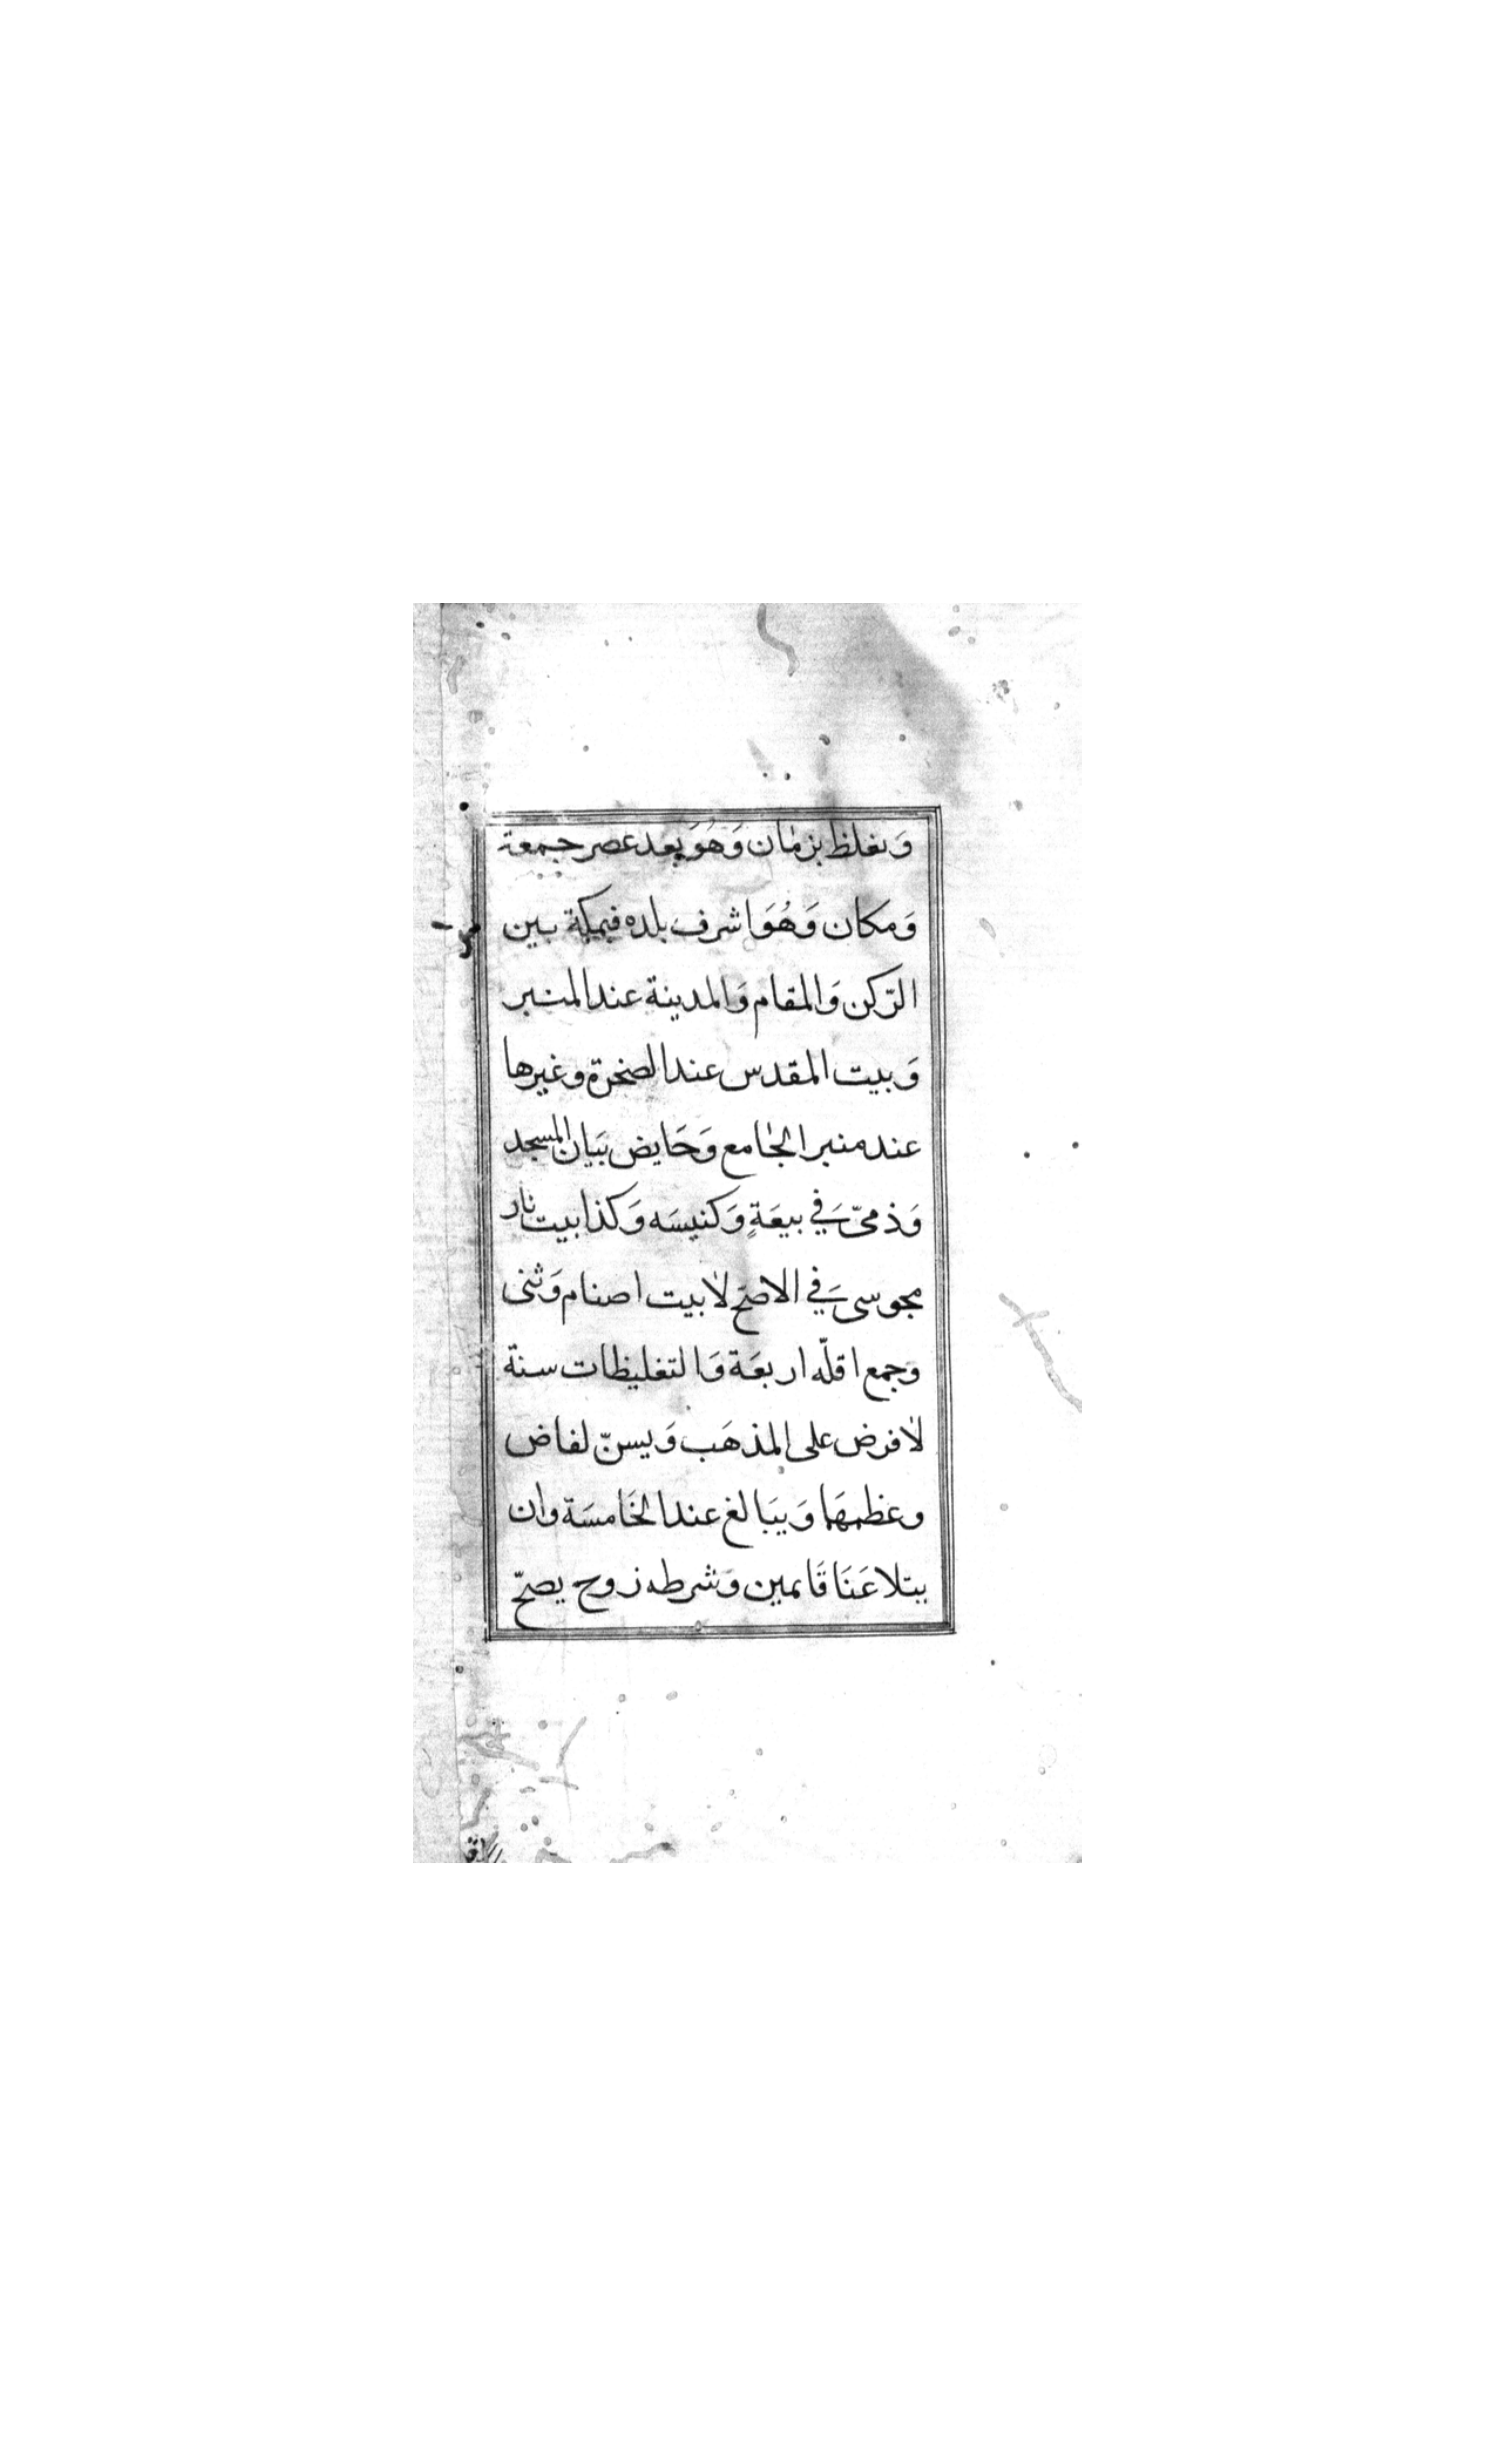 وَتغلظ بزمَان وَهُوَ بعد عصر جمعة
وَمكان وَهُوَ اشرف بلده فبمكة بين
الرّكن وَالمقام وَالمدينة عند المنبر
وَبيت المقدس عند الصخرة وغيرها
عند منبر الجَامع وَحَايض بَبَاب المسجد
وَذمىّ فَي بيعَةٍ وَكنيسَه وَكذا بيت نار
مجوسى فَي الاصَح لا بيت اصنام وَثنى
وَجمع اقلّه اربعَة وَالتغليظات سنة
لا فرض على المذهَب وَيسنّ لقاض
وعظهمَا وَيبَالغ عند الخَامسَة وان
يتلاعَنَا قَايمين وَشرطه زوج يصحّ